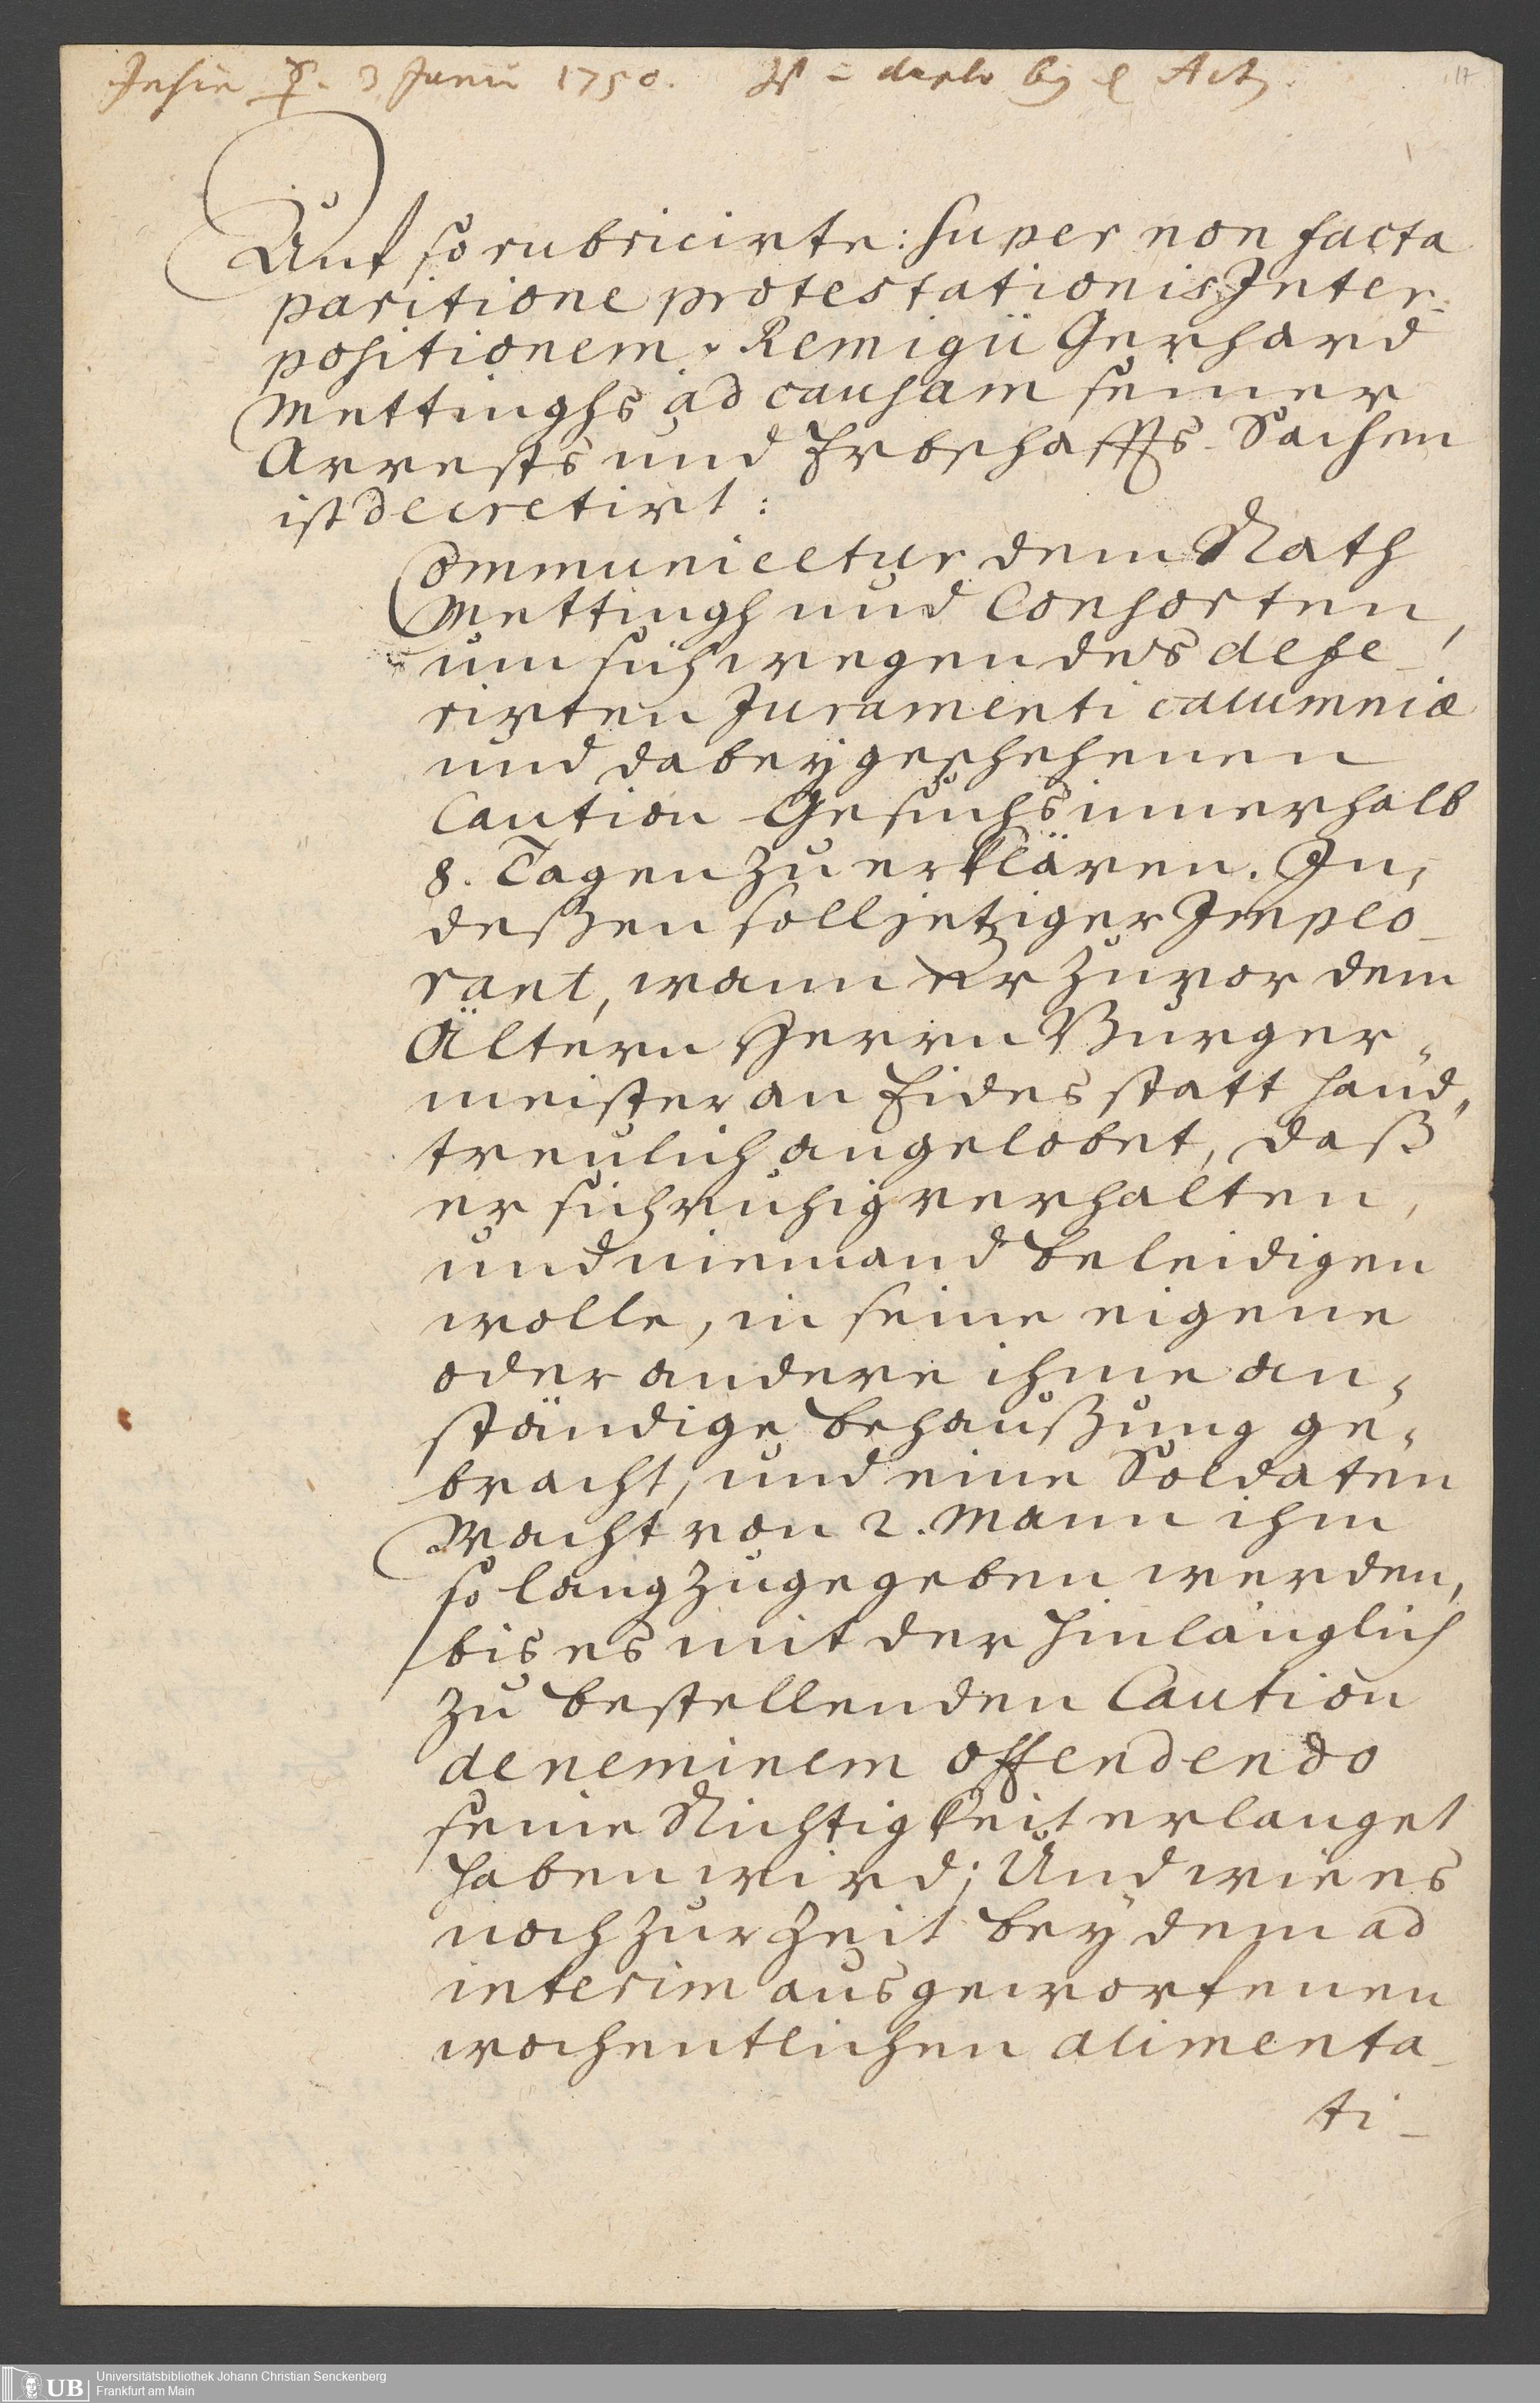 3 Junii 1750.
17
Auf so rubricirte: super non facta
paritione protestationis Inter-
positionem Remigii Gerhard
Mettinghs ad causam seiner
Arrests und Erbschaffts-Sachen
ist decretirt:
Communicetur dem Rath
Mettingh und Consorten,
um sich wegen des defe-
rirten Juramenti calumniæ
und dabey geschehenen
Caution Gesuchs innerhalb
8. Tagen zu erklären. In,
deßen soll jetziger Implo-
rant, wann er zuvor dem
Ältern Herrn Burger,,
meister an Eides statt hand,,
treulich angelobet, daß
er sich ruhig verhalten,
und niemand beleidigen
wolle, in seine eigene
oder andere ihme an,
ständige Behaußung ge,
bracht, und eine Soldaten
Wacht von 2. Mann ihm
so lang zugegeben werden,
bis es mit der hinlänglich
zu bestellenden Caution
de neminem offendendo
seine Richtigkeit erlanget
haben wird; Und wie es
noch zur Zeit bey dem ad
interim ausgeworfenen
wochentlichen alimenta-
ti-
UB Universitätsbibliothek Johann Christian Senckenberg
Frankfurt am Main